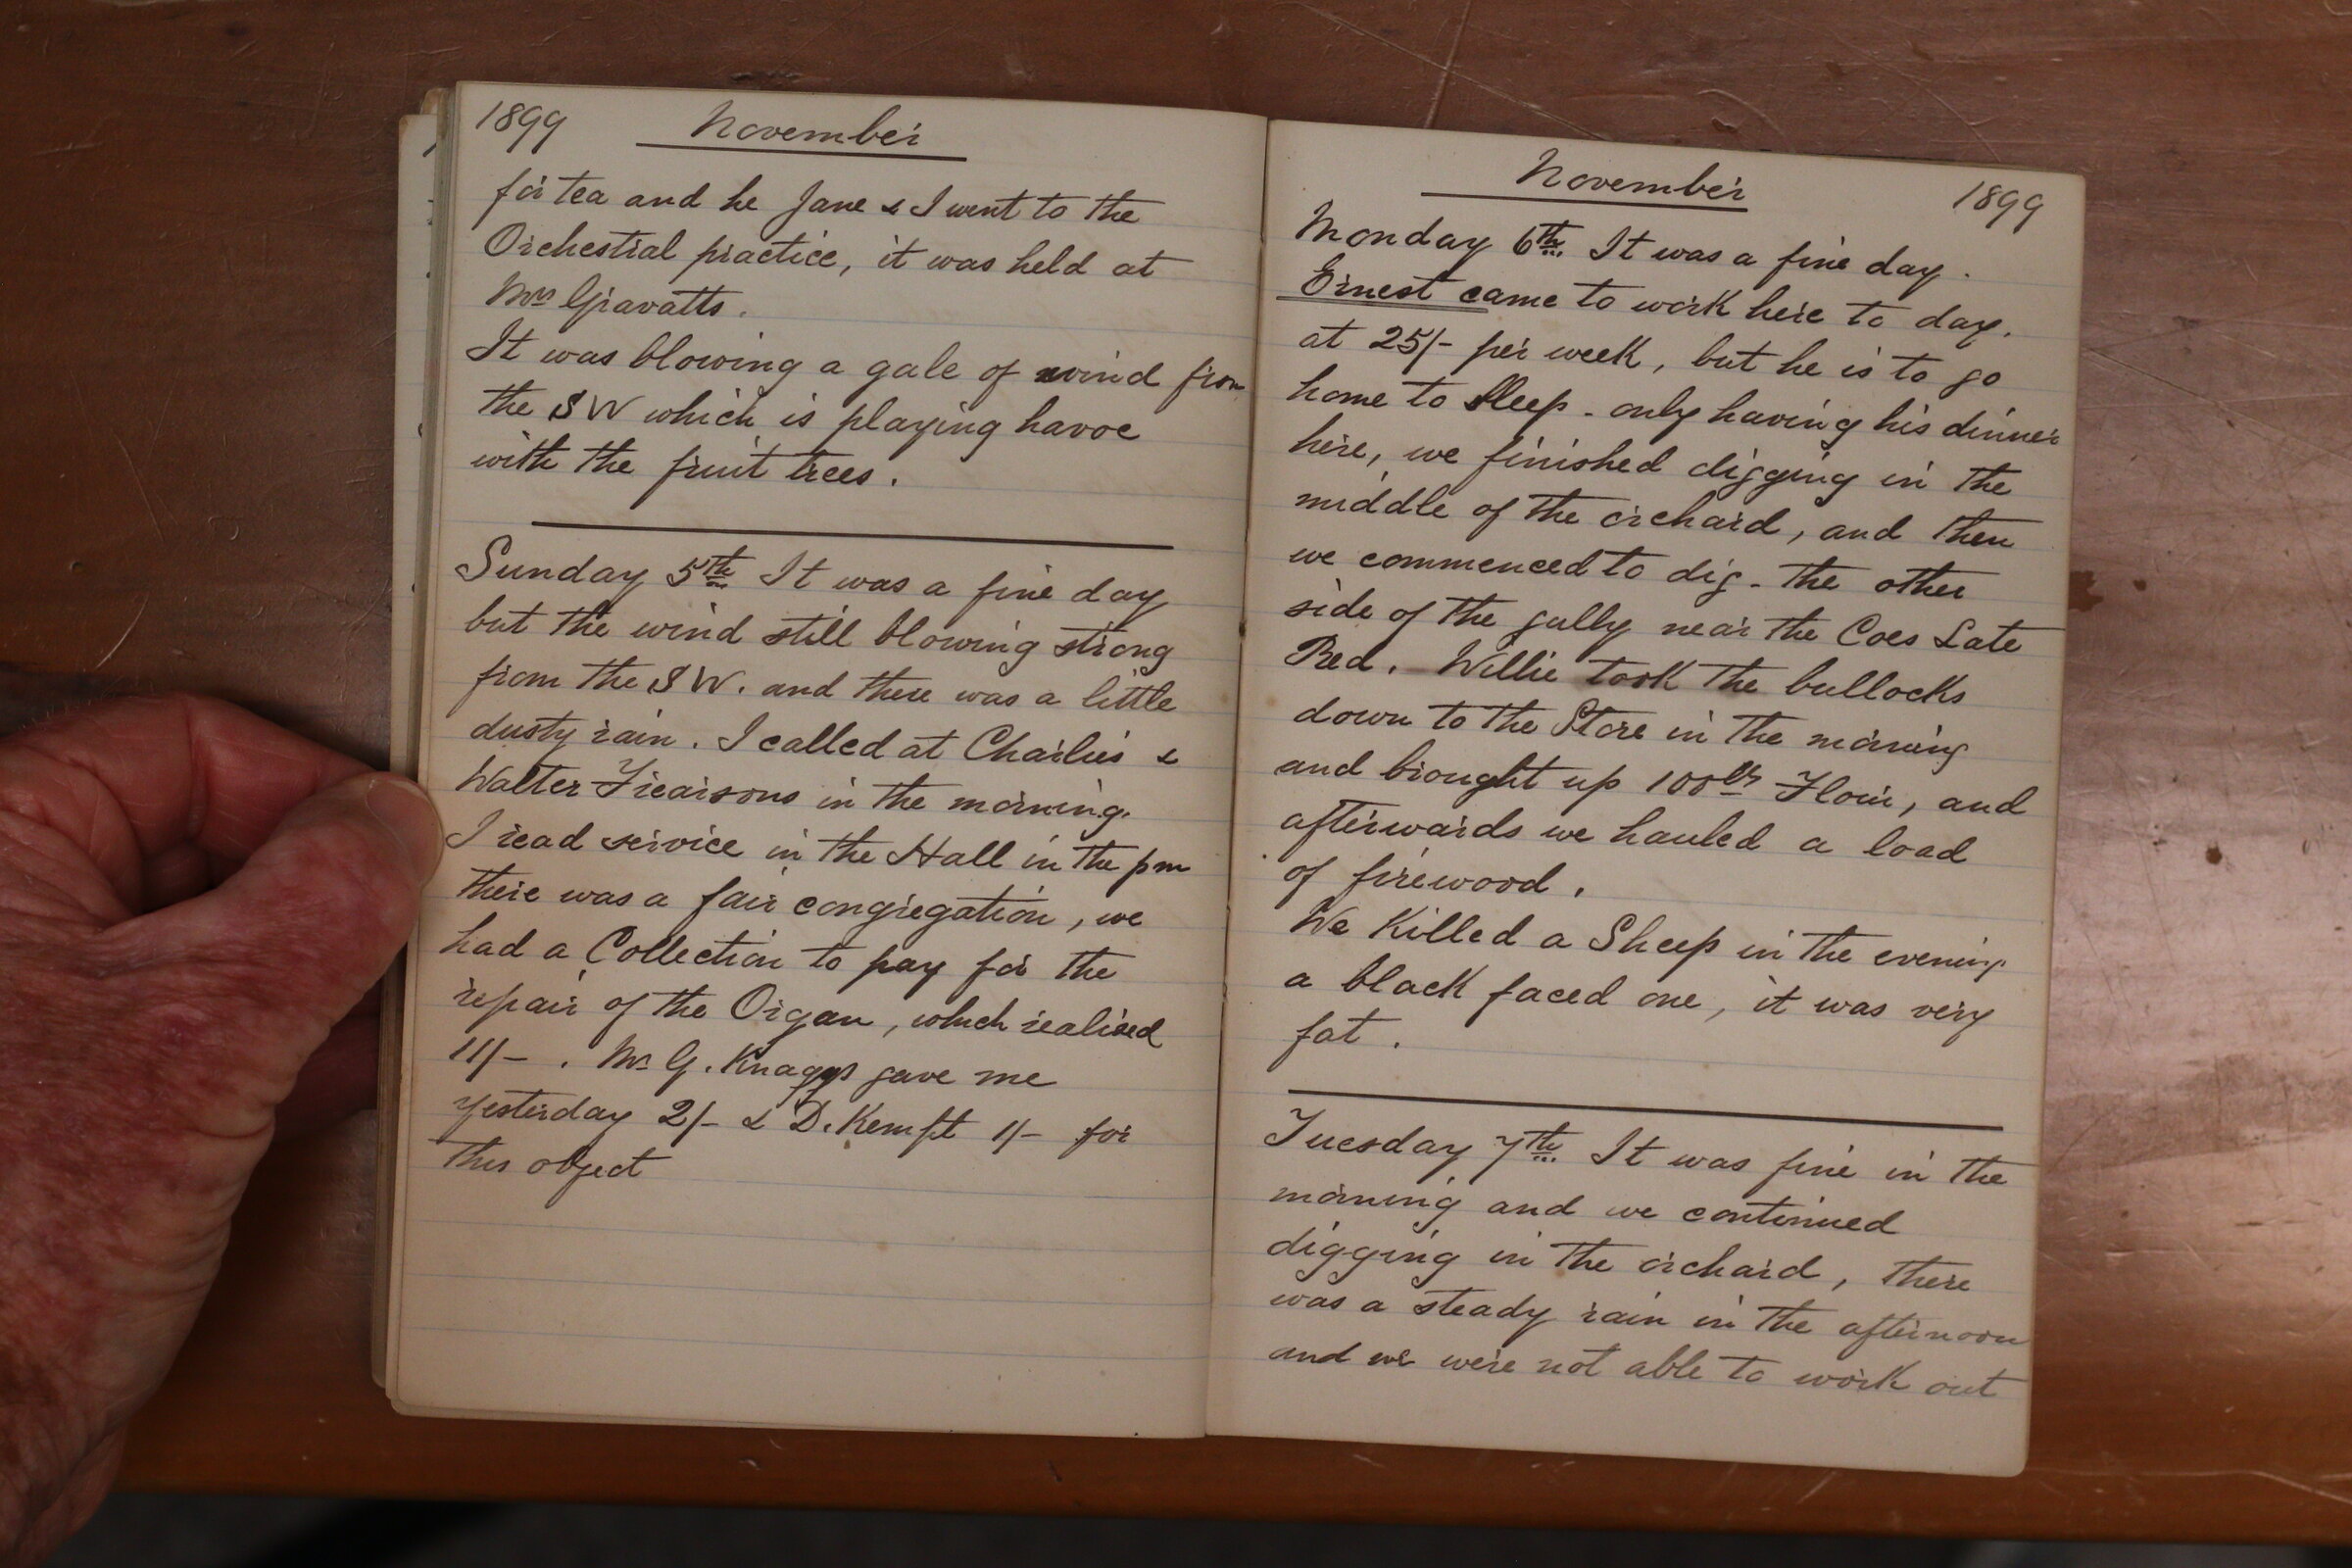 1899 November
for tea and he Jane & I went to the
Orchestral practice, it was held at
Mrs Gravatts.
It was blowing a gale of wind from
the SW which is playing havoc
with the fruit trees.
Sunday 5th It was a fine day
but the wind still blowing strong
from the SW. and there was a little
dusty rain. I called at Charlies &
Walter Frearsons in the morning.
I read service in the Hall in the pm
there was a fair congregation, we
had a Collection to pay for the
repair of the Organ, which realised
11/- . Mr G. Knaggs gave me
yesterday 2/- & D. Kempt 1/- for
this object
November 1899
Monday 6th It was a fine day.
Ernest came to work here to day.
at 25/- per week, but he is to go
home to sleep - only having his dinner
here, we finished digging in the
middle of the orchard, and then
we commenced to dig - the other
side of the gully near the Coes Late
Red. Willie took the bullocks
down to the Store in the morning
and brought up 100lbs Flour, and
afterwards we hauled a load
of firewood.
We Killed a Sheep in the evening
a black faced one, it was very
fat.
Tuesday 7th It was fine in the
morning and we continued
digging in the orchard, there
was a steady rain in the afternoon
and we were not able to work out